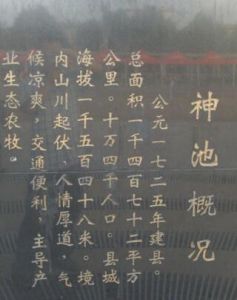 神池概况
公元一七二五年建县。
总面积一千四百七十二平方
公里。十万四千人口。县城
海拔一千五百四十八米。境
内山川起伏，人情厚道，气
候凉爽，交通便利，主导产
业生态农牧。